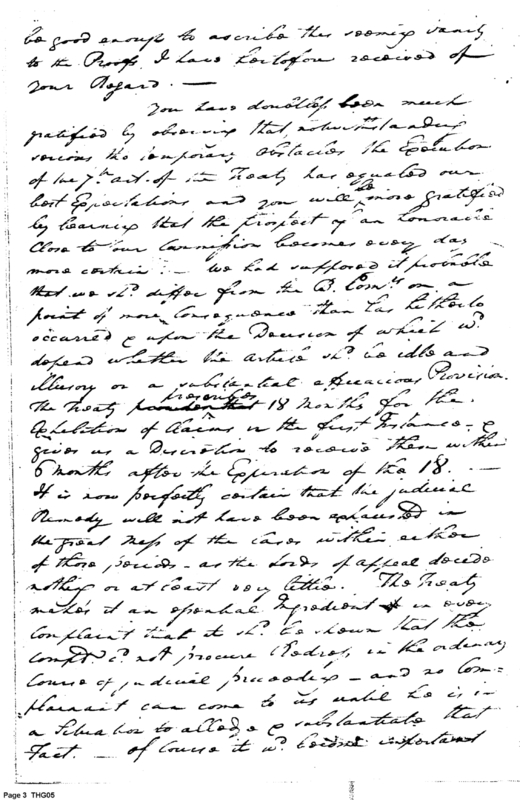 be good enough to ascribe this seeming vanity
to the Proofs I have heretofore received of
your Regard. —
You have doubtless been much
gratified by observing that, notwithstanding
various tho temporary obstacles the Execution
of the 7th art. of the Treaty has equalled our
best Expectations and you will be more gratified
by learning that the prospect of an honorable
Close to our Commission becomes every day
more certain. — We had supposed it probable
that we shd. differ from the B. Comrs. on a
point of more Consequence than has hitherto
occurred & upon the Decision of which wd.
depend whether the article shd. be idle and
illusory or a substantial efficacious Provision.
The Treaty prescribes 18 Months for the
Exhibition of Claims in the first Instance - &
gives us a Discretion to receive them within
6 months after the Expiration of the 18. —
It is now perfectly certain that the judicial
Remedy will not have been exhausted in
the great Mass of the Cases within either
of those periods - as the Lords of appeal decide
nothing or at least very little. The Treaty
makes it an essential Ingredient in every
Complaint that it shd. be shown that the
Compt. cd. not procure Redress, in the ordinary
Course of judicial proceeding - and no Com=
plainant can come to us until he is in
a Situation to alledge & substantiate that
Fact. — Of Course it wd. become important
Page 3 THG05